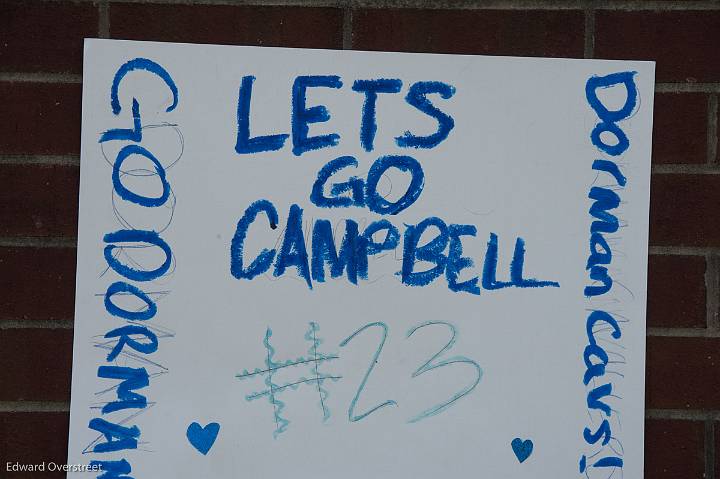 GO DORMAN
LETS
GO
CAMPBELL
#23
Dorman Cavs!
Edward Overstreet